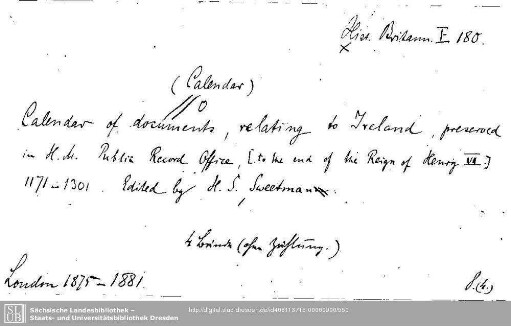 Hist. Britann. I 180.
(Calendar)
Calendar of documents, relating to Ireland, preserved
in H. M. Public Record Office, [to the end of the Reign of Henry VII.]
1171–1301. Edited by H. S. Sweetman.
4 Bände (ohne Zählung.)
London 1875–1881. 8.(4.)
SLUB
Sächsische Landesbibliothek –
Staats- und Universitätsbibliothek Dresden